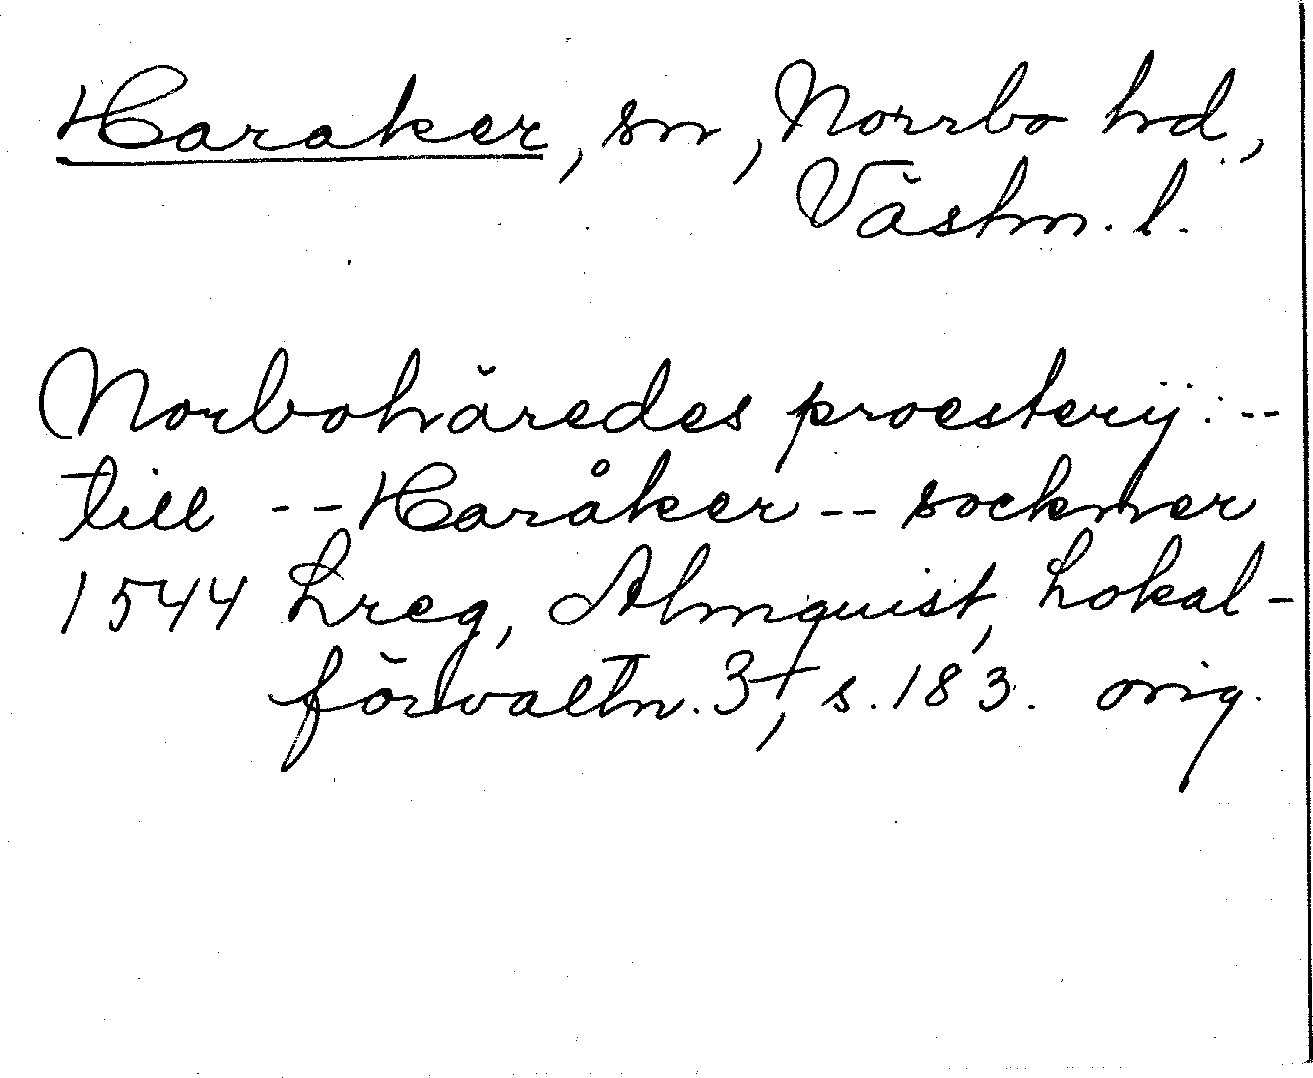 Haraker, sn, Norrbo hd,
Västm. l.
Norbohäredes proesterij: --
till -- Haråker -- sockner
1544 Lreg, Almquist, Lokal-
förvaltn. 3, s. 183. orig.